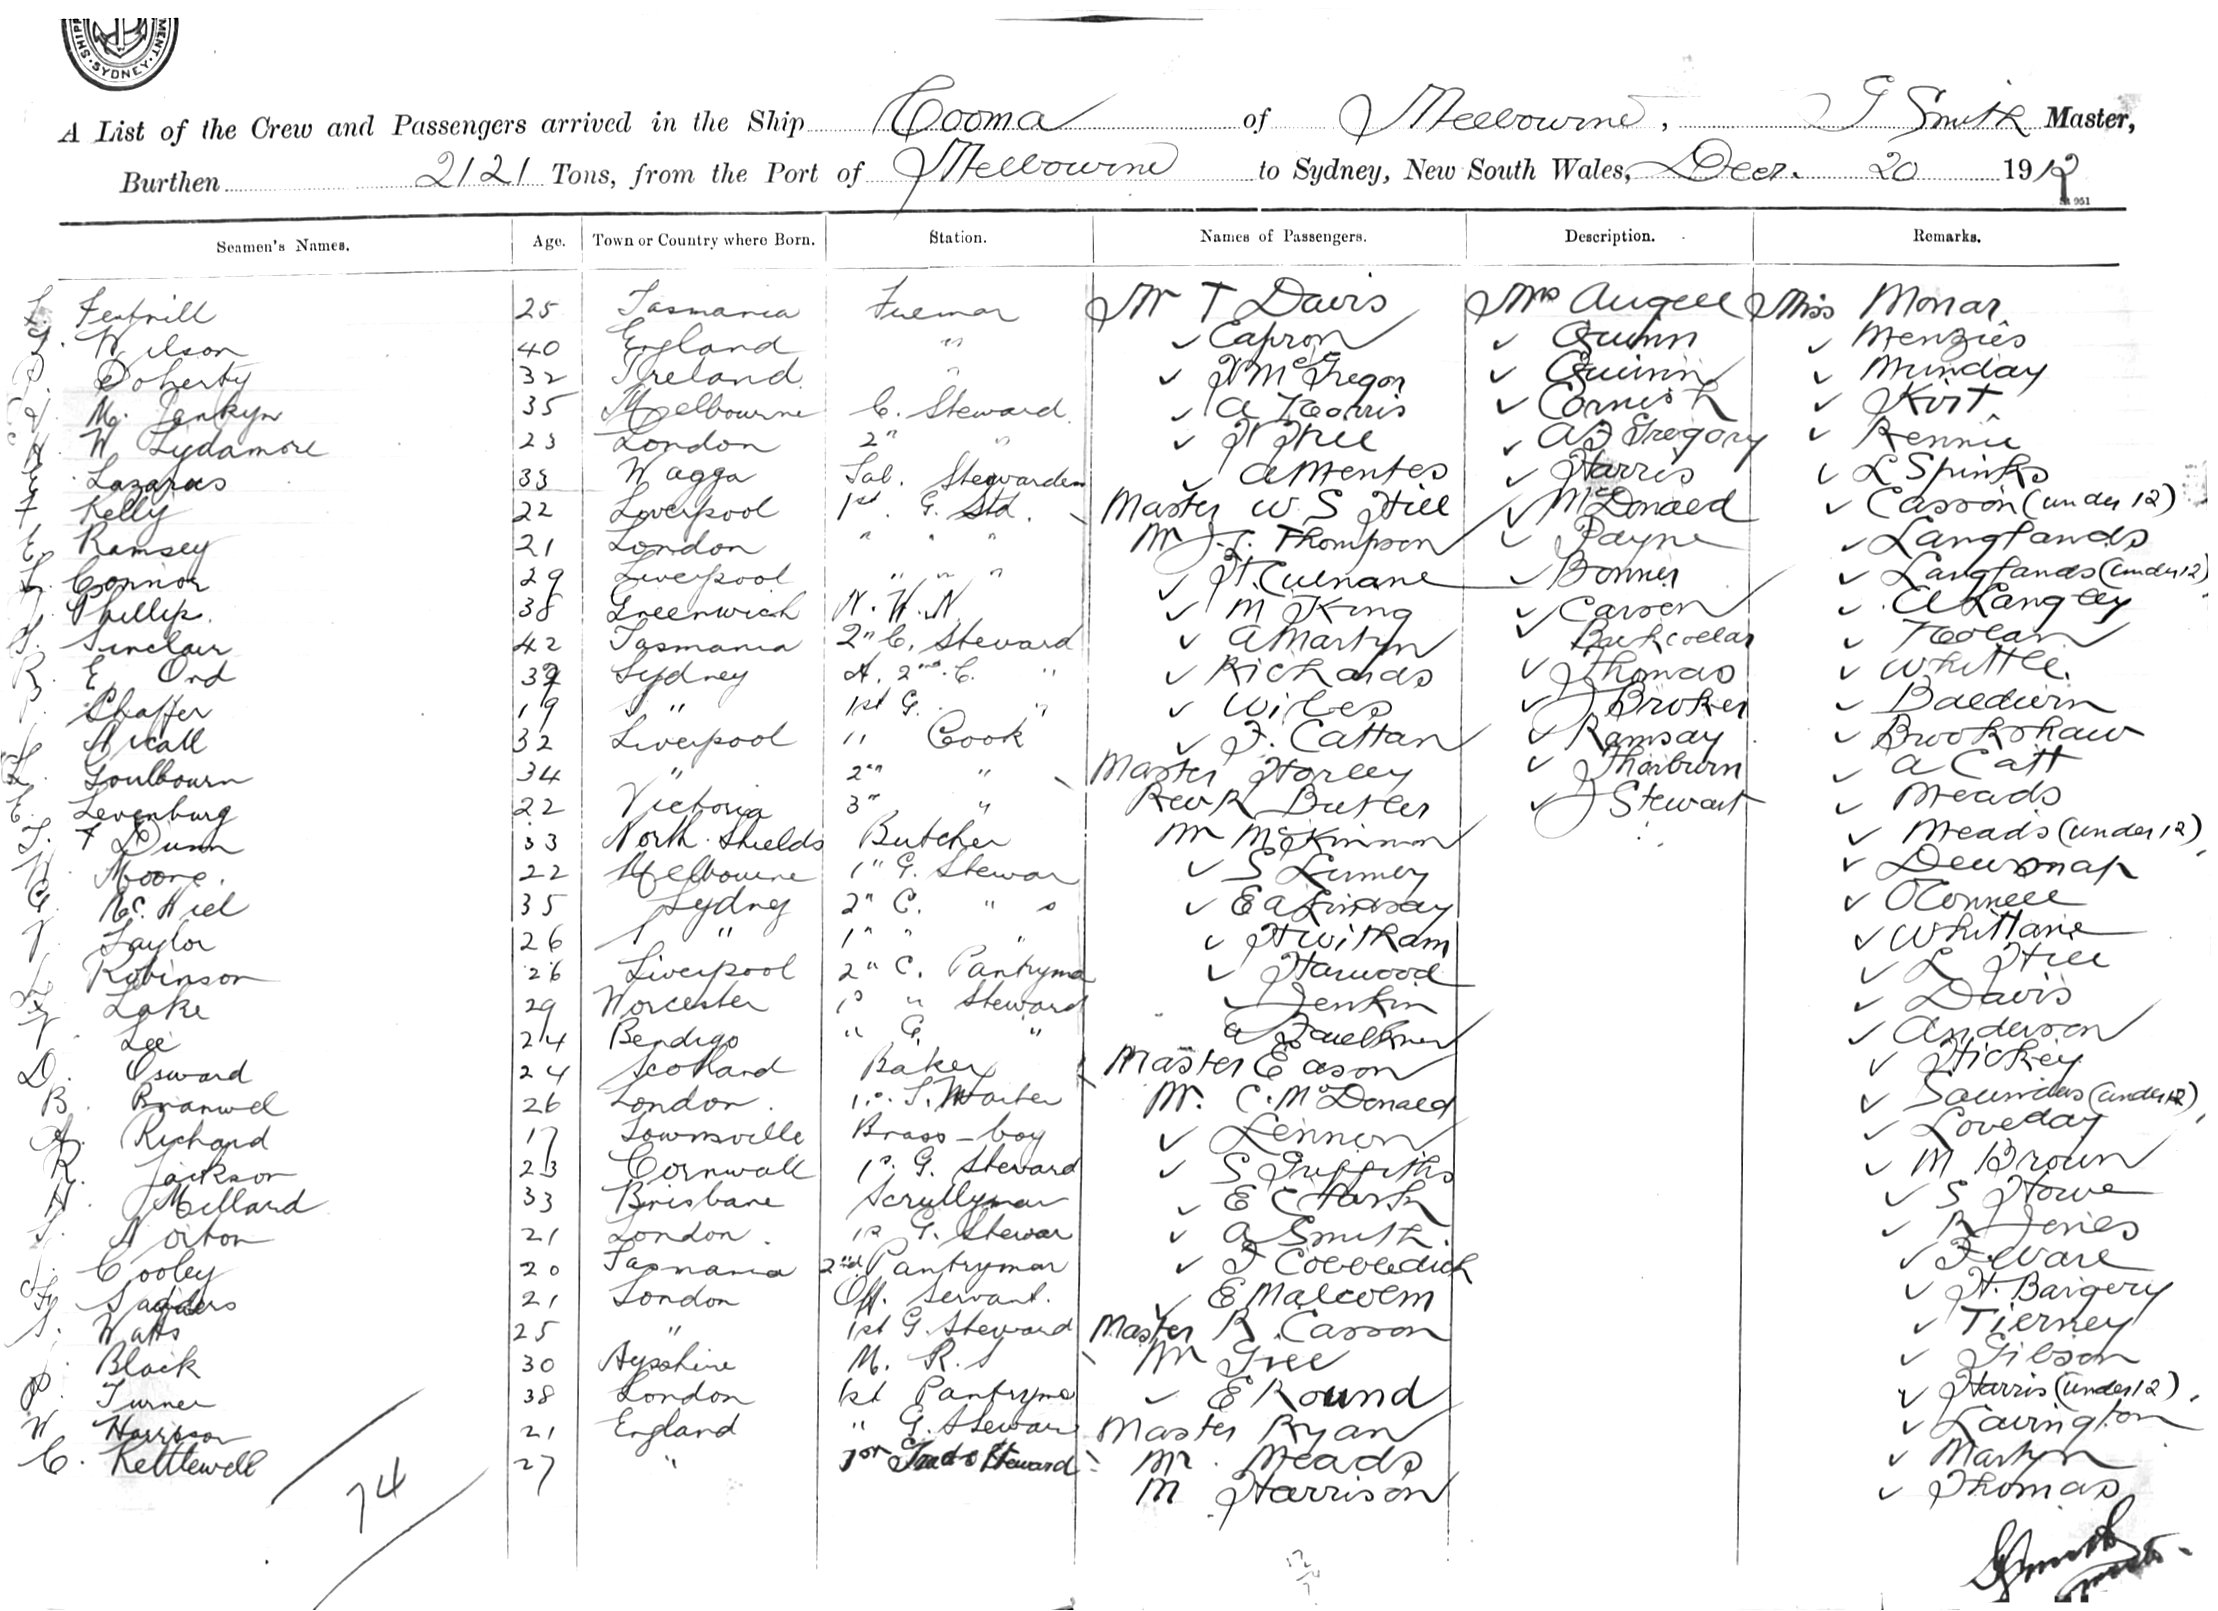 SHIP MENT. SYDNEY.
A List of the Crew and Passengers arrived in the Ship Cooma of Melbourne, G Smith Master,
Burthen 2121 Tons, from the Port of Melbourne to Sydney, New South Wales, Decr. 20 1912
951
Seamen's Names. Age. Town or Country where Born. Station. Names of Passengers. Description. Remarks.
25 Tasmania Fireman Mr T Davis Mrs Angell Miss Monar
Wilson 40 England " ✓ Capron ✓ Quinn ✓ Menzies
Doherty 32 Ireland " ✓ McGregor ✓ Quinn ✓ Munday
M. Jenkyn 35 Melbourne C. Steward ✓ A Norris ✓ Cornish ✓ Kirt
H W Sydamore 23 London 2" " ✓ H Hill ✓ Gregory ✓ Rennie
Lazarus 33 Wagga Sal. Stewardess ✓ A Mentes ✓ Harris ✓ L Spinks
F Kelly 22 Liverpool 1st. G. Std. Master W S Hill ✓ McDonald ✓ Casson (under 12)
E. Ramsey 21 London " " " Mr Thompson ✓ Payne ✓ Langlands
Connor 29 Liverpool " " " ✓ H. Culnane ✓ Bonner ✓ Langlands (under 12)
Phillip. 38 Greenwich N. W. N. ✓ M King ✓ Carsen ✓ Langley
Sinclair 42 Tasmania 2" C. Steward ✓ A Martyn ✓ ✓ Nolan
R. E Ord Sydney A. 2nd C. " ✓ Richards ✓ Thomas ✓ Whittle.
Chaffer 19 " 1st G. " ✓ Wiles ✓ Broker ✓ Baldwin
32 Liverpool " Cook ✓ F. Cattan ✓ Ramsay ✓ Brookshaw
Goulbourn 34 " 2nd " Master Horley ✓ Thorburn ✓ A Catt
E. Levenburg 22 Victoria 3" " Rev R Butler ✓ Stewart ✓ Meads
F Dunn 33 North Shields Butcher Mr McKinnon ✓ Meads (under 12)
Moore. 22 Melbourne 1" G. Stewar ✓ S ✓ Dewsnap
G. 35 Sydney 2" C. " ✓ E A Lindsay ✓ OConnell
Taylor 26 " 1" " " ✓ H Witham ✓ Whittane
Robinson 26 Liverpool 2" C. Pantryma ✓ Harwood ✓ L Hill
Lake 29 Worcester " Steward ✓ Jenkin ✓ Davis
Lee 24 Bendigo " G. " Faulkner ✓ Anderson
D. Osward 24 Scotland Baker Master Eason ✓ Hickey
B. Branwel 26 London. Mr. C. McDonald ✓ Saunders (under 12)
A. Richard 17 Townsville Brass-boy ✓ Lennon ✓ Loveday
R. Jackson 23 Cornwall G. Steward ✓ S Griffiths ✓ M Brown
H. Millard 33 Brisbane Scrullyman ✓ E Clark ✓ S Howe
Norton 21 London. G. Stewar ✓ A Smith. ✓ R Jones
Cooley 20 Tasmania 2nd Pantryman ✓ F Cobbledick ✓ F. Ware
21 London Off. Servant. ✓ E Malcolm ✓ H. Bargery
Watts 25 " 1st G. Steward Master R. Casson ✓ Tierney
Black 30 Ayrshire M. R. S Mr Tree ✓ Gibson
P. Turner 38 London 1st Pantryma ✓ E Round ✓ Harris (under 12)
W Harrison 21 England " G. Stewar Master Ryan ✓ Lavington
C. Kettlewell 27 " Steward Mr. Meads ✓ Martyn
74 M Harrison ✓ Thomas
G Smith